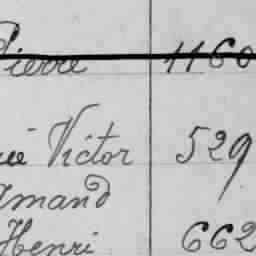 Pierre 1160
Victor 529
Amand
Henri 662